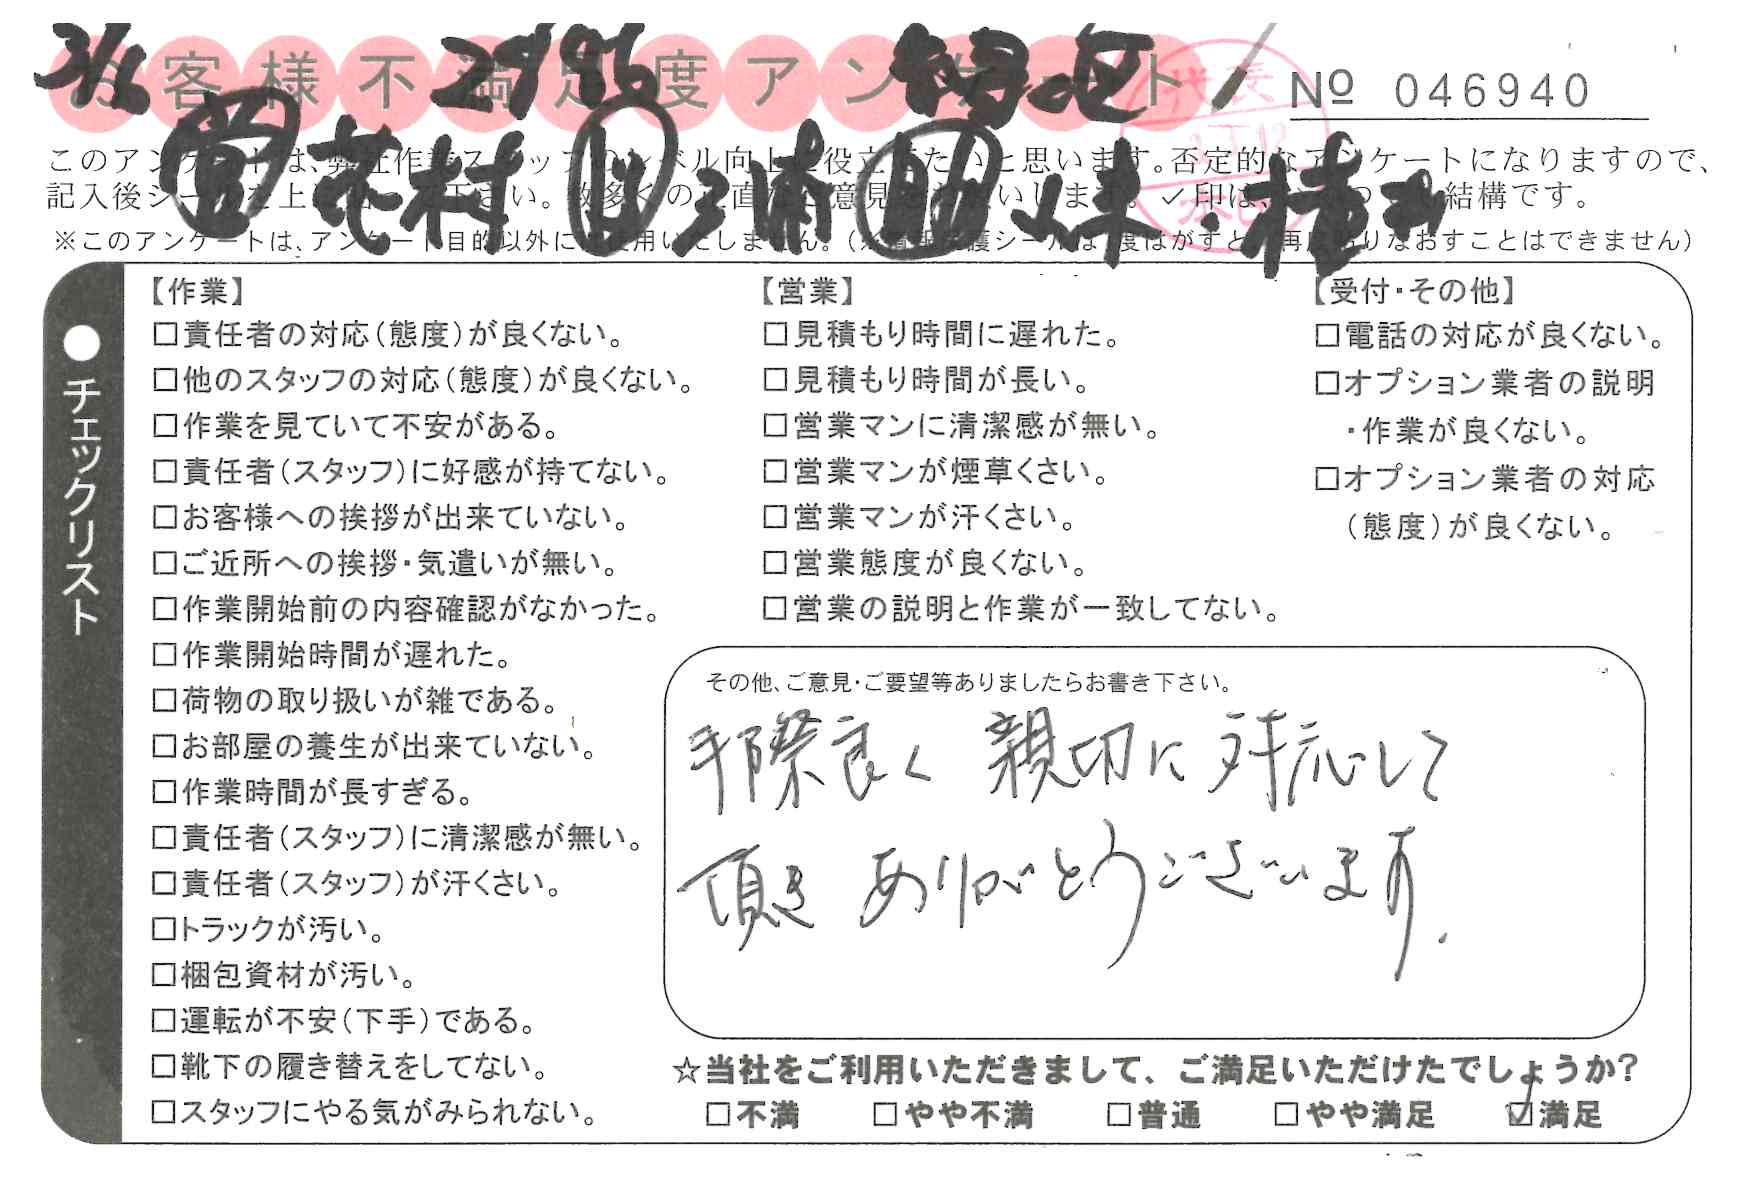 お客様不満足度アンケート
№ 046940
3/6 2496 緑区
営 花村
このアンケートは、弊社作業スタッフのレベル向上に役立てたいと思います。否定的なアンケートになりますので、
記入後シールを上に貼って下さい。数多くの正直なご意見をお願いします。✓印はいくつでも結構です。
※このアンケートは、アンケート目的以外には使用いたしません。(※情報保護シールは1度はがすと、再度貼りなおすことはできません)
●チェックリスト
【作業】
□責任者の対応(態度)が良くない。
□他のスタッフの対応(態度)が良くない。
□作業を見ていて不安がある。
□責任者(スタッフ)に好感が持てない。
□お客様への挨拶が出来ていない。
□ご近所への挨拶・気遣いが無い。
□作業開始前の内容確認がなかった。
□作業開始時間が遅れた。
□荷物の取り扱いが雑である。
□お部屋の養生が出来ていない。
□作業時間が長すぎる。
□責任者(スタッフ)に清潔感が無い。
□責任者(スタッフ)が汗くさい。
□トラックが汚い。
□梱包資材が汚い。
□運転が不安(下手)である。
□靴下の履き替えをしてない。
□スタッフにやる気がみられない。
【営業】
□見積もり時間に遅れた。
□見積もり時間が長い。
□営業マンに清潔感が無い。
□営業マンが煙草くさい。
□営業マンが汗くさい。
□営業態度が良くない。
□営業の説明と作業が一致してない。
【受付・その他】
□電話の対応が良くない。
□オプション業者の説明
・作業が良くない。
□オプション業者の対応
(態度)が良くない。
その他、ご意見・ご要望等ありましたらお書き下さい。
手際良く 親切に対応して
頂き ありがとうございます.
☆当社をご利用いただきまして、ご満足いただけたでしょうか?
□不満 □やや不満 □普通 □やや満足 ☑満足